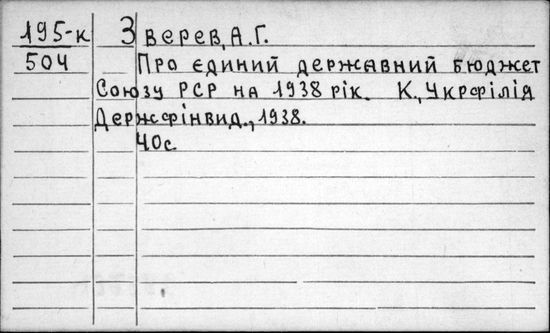 195-к Зверев, А.Г.
504 Про єдиний державний бюджет
Союзу РСР на 1938 рік. К., Укрфілія
Держфінвид., 1938.
40с.